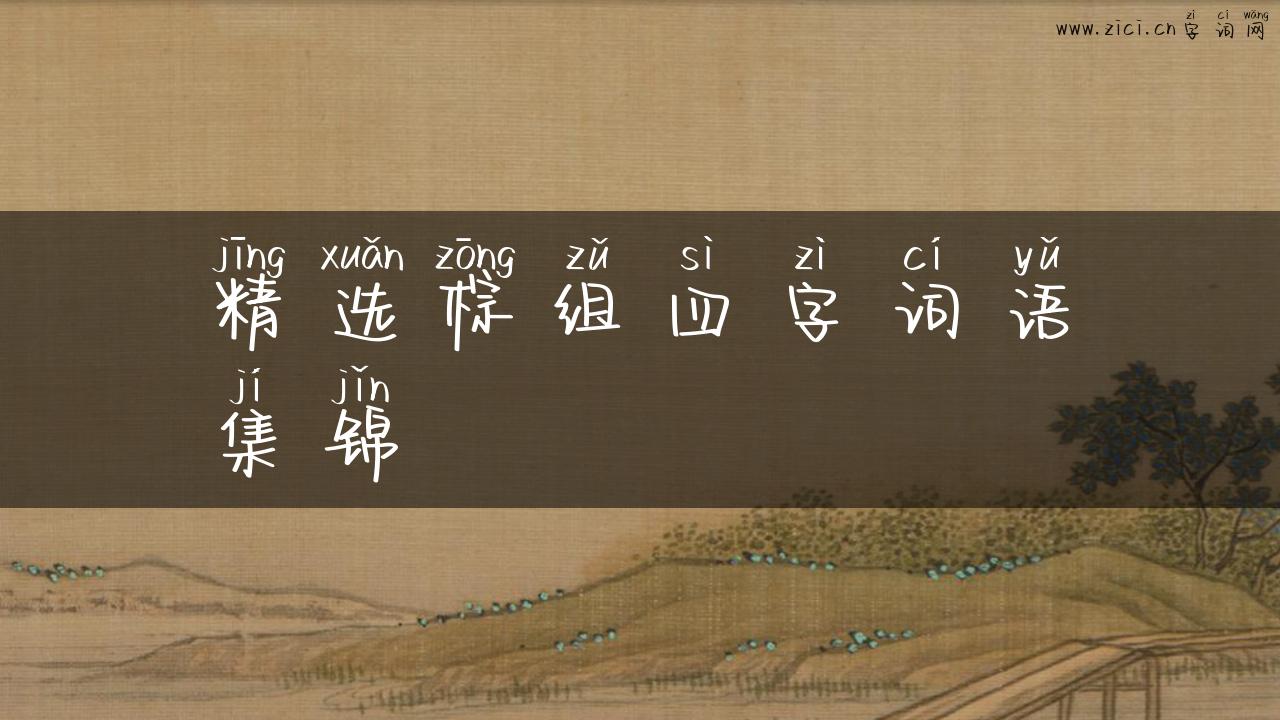 zì cí wǎng
www.zici.cn 字词网
jīng xuǎn zōng zǔ sì zì cí yǔ
精选棕组四字词语
jí jǐn
集锦